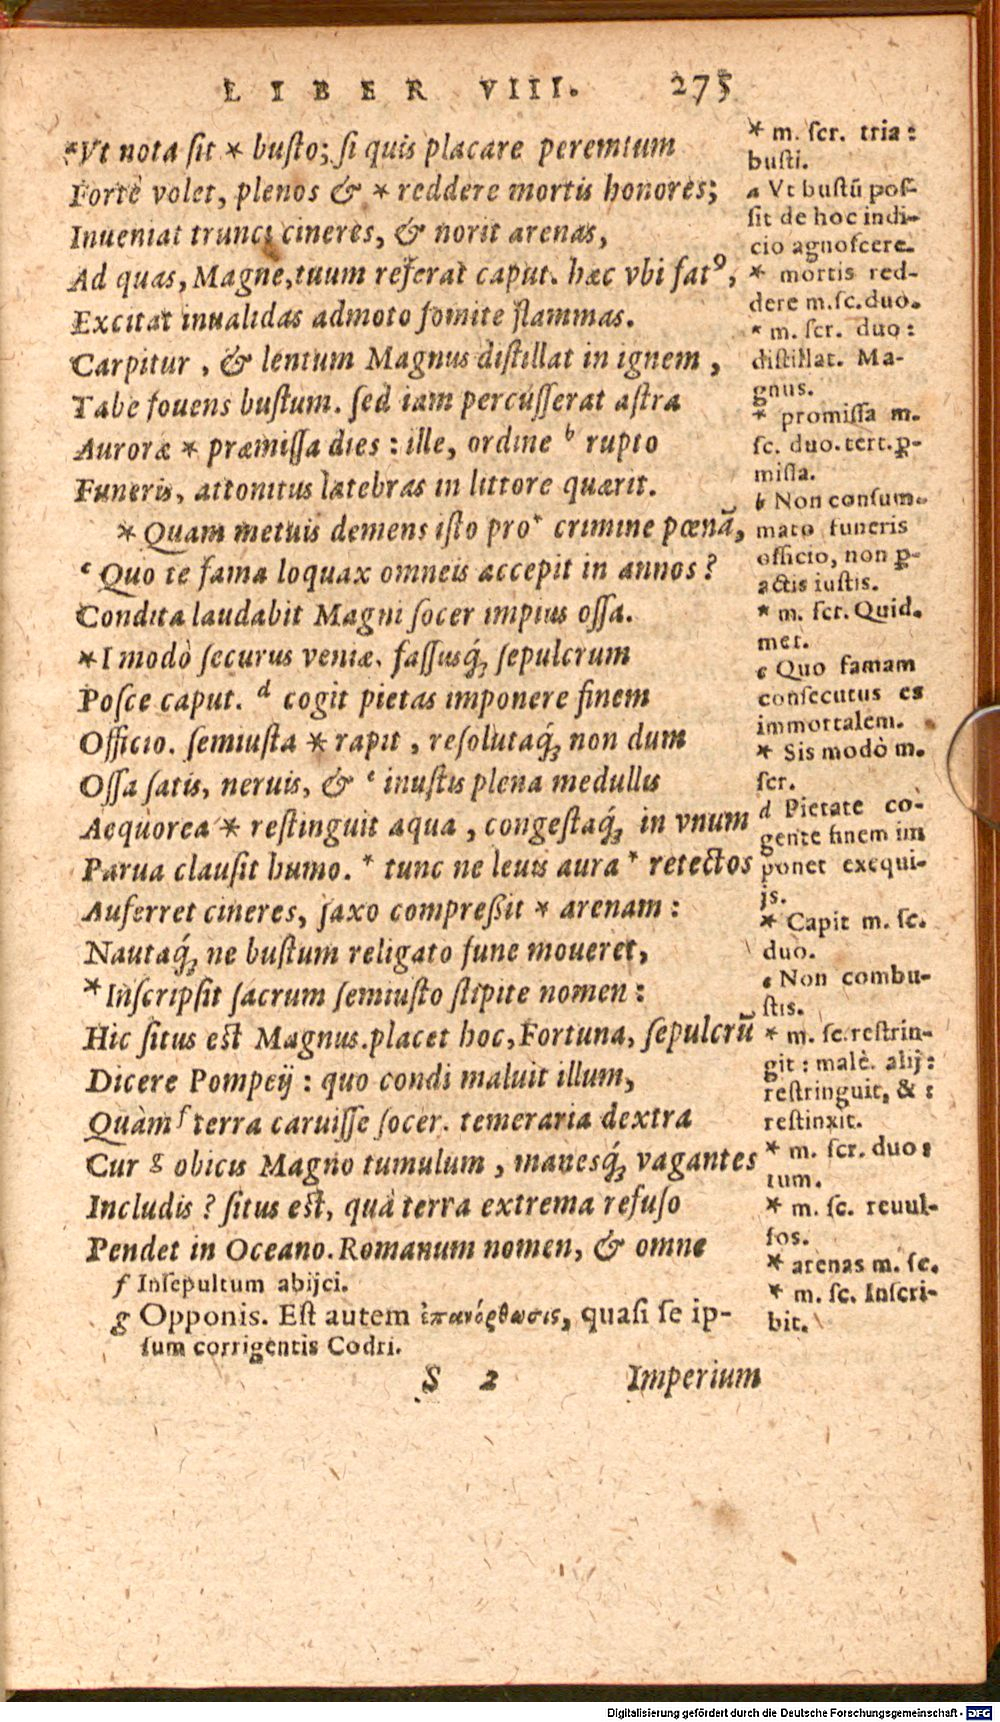 LIBER VIII. 275
ᵃVt nota sit * busto; si quis placare peremtum
Fortè volet, plenos & * reddere mortis honores;
Inueniat trunci cineres, & norit arenas,
Ad quas, Magne, tuum referat caput. hæc vbi fatꝰ,
Excitat inualidas admoto fomite flammas.
Carpitur, & lentum Magnus distillat in ignem,
Tabe fouens bustum. sed iam percusserat astra
Auroræ * præmissa dies: ille, ordine ᵇ rupto
Funeris, attonitus latebras in littore quærit.
* Quam metuis demens isto pro* crimine pœnã,
ᶜ Quo te fama loquax omneis accepit in annos?
Condita laudabit Magni socer impius ossa.
*I modò securus veniæ, fassusq́ꝫ sepulcrum
Posce caput. ᵈ cogit pietas imponere finem
Officio. semiusta * rapit, resolutaq́ꝫ non dum
Ossa satis, neruis, & ᵉ inustis plena medullis
Aequorea * restinguit aqua, congestaq́ꝫ in vnum
Parua clausit humo. * tunc ne leuis aura * retectos
Auferret cineres, saxo compreßit * arenam:
Nautaq́ꝫ ne bustum religato fune moueret,
*Inscripsit sacrum semiusto stipite nomen:
Hic situs est Magnus. placet hoc, Fortuna, sepulcrũ
Dicere Pompeij: quo condi maluit illum,
Quàm ᶠ terra caruisse socer. temeraria dextra
Cur ᵍ obicis Magno tumulum, manesq́ꝫ vagantes
Includis? situs est, quà terra extrema refuso
Pendet in Oceano. Romanum nomen, & omne
f Insepultum abijci.
g Opponis. Est autem ἐπανόρθωσις, quasi se ip-
sum corrigentis Codri.
S 2 Imperium
* m. scr. tria:
busti.
a Vt bustũ pos-
sit de hoc indi-
cio agnoscere.
* mortis red-
dere m. sc. duo.
* m. scr. duo:
distillat. Ma-
gnus.
* promissa m.
sc. duo. tert. ꝑ-
missa.
b Non consum-
mato funeris
officio, non ꝑ-
actis iustis.
* m. scr. Quid.
met.
c Quo famam
consecutus es
immortalem.
* Sis modò m.
scr.
d Pietate co-
gente finem im
ponet exequi-
js.
* Capit m. sc.
duo.
e Non combu-
stis.
* m. sc. restrin-
git: malè. alij:
restringuit, & :
restinxit.
* m. scr. duo:
tum.
* m. sc. reuul-
sos.
* arenas m. sc.
* m. sc. Inscri-
bit.
Digitalisierung gefördert durch die Deutsche Forschungsgemeinschaft - DFG